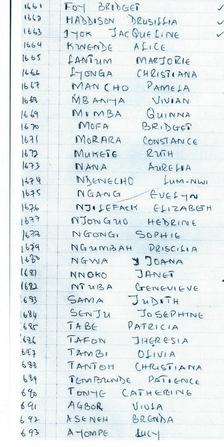 1661 FOY BRIDGET
1662 HADDISON DRUSILLIA
1663 IYOK JACQUELINE
1664 KWENDE ALICE
1665 LANTUM MARJORIE
1666 LYONGA CHRISTIANA
1667 MANCHO PAMELA
1668 MBANYA VIVIAN
1669 MIMBA QUINNA
1670 MOFA BRIDGET
1671 MORARA CONSTANCE
1672 MUKETE RUTH
1673 NANA AURELIA
1674 NDENECHO LUM-NWI
1675 NGANG EVELYN
1676 NJILEFACK ELIZABETH
1677 NJONGUO HEDRINE
1678 NGONGI SOPHIE
1679 NGUMBAH PRISCILIA
1680 NGWA JOANA
1681 NNOKO JANET
1682 NTUBA GENEVIEVE
693 SAMA JUDITH
684 SENJU JOSEPHINE
685 TABE PATRICIA
686 TAFON THERESIA
687 TAMBI OLIVIA
688 TANTOH CHRISTIANA
689 TEMBUNDE PATIENCE
690 TONYE CATHERINE
691 AGBOR VIOLA
692 ASENEH BRENDA
693 AYOMPE LUCY